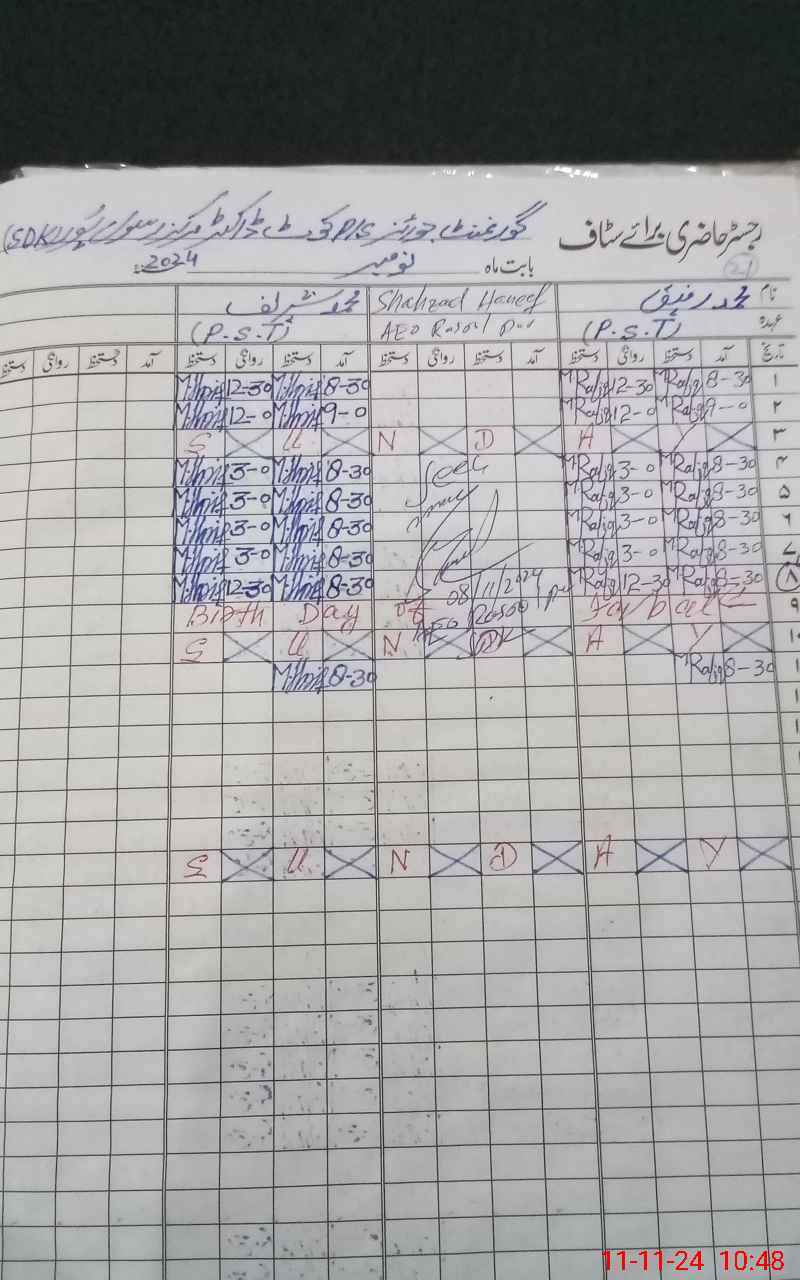 رجسٹر حاضری برائے سٹاف گورنمنٹ بوائز P/S
بابت ماہ نومبر 2024
نام محمد رفیق Shahzad Haneef محمد شریف
عہدہ (P.S.T) AEO Rasool Pur (P.S.T)
تاریخ آمد دستخط روانگی دستخط آمد دستخط روانگی دستخط آمد دستخط روانگی دستخط آمد دستخط روانگی دستخط
۱ 8-30 MRafiq 12-30 MRafiq 8-30 12-30
۲ 9-0 MRafiq 12-0 MRafiq 9-0 12-0
۳ S U N D A Y
۴ 8-30 MRafiq 3-0 MRafiq Seen 8-30 3-0
۵ 8-30 MRafiq 3-0 MRafiq 8-30 3-0
۶ 8-30 MRafiq 3-0 MRafiq 8-30 3-0
۷ 8-30 MRafiq 3-0 MRafiq 8-30 3-0
۸ 8-30 MRafiq 12-30 MRafiq 08/11/2024 8-30 12-30
AEO Rasool Pur
۹ Birth Day of
۱۰ S U N D A Y
8-30 MRafiq 8-30
S U N D A Y
11-11-24 10:48